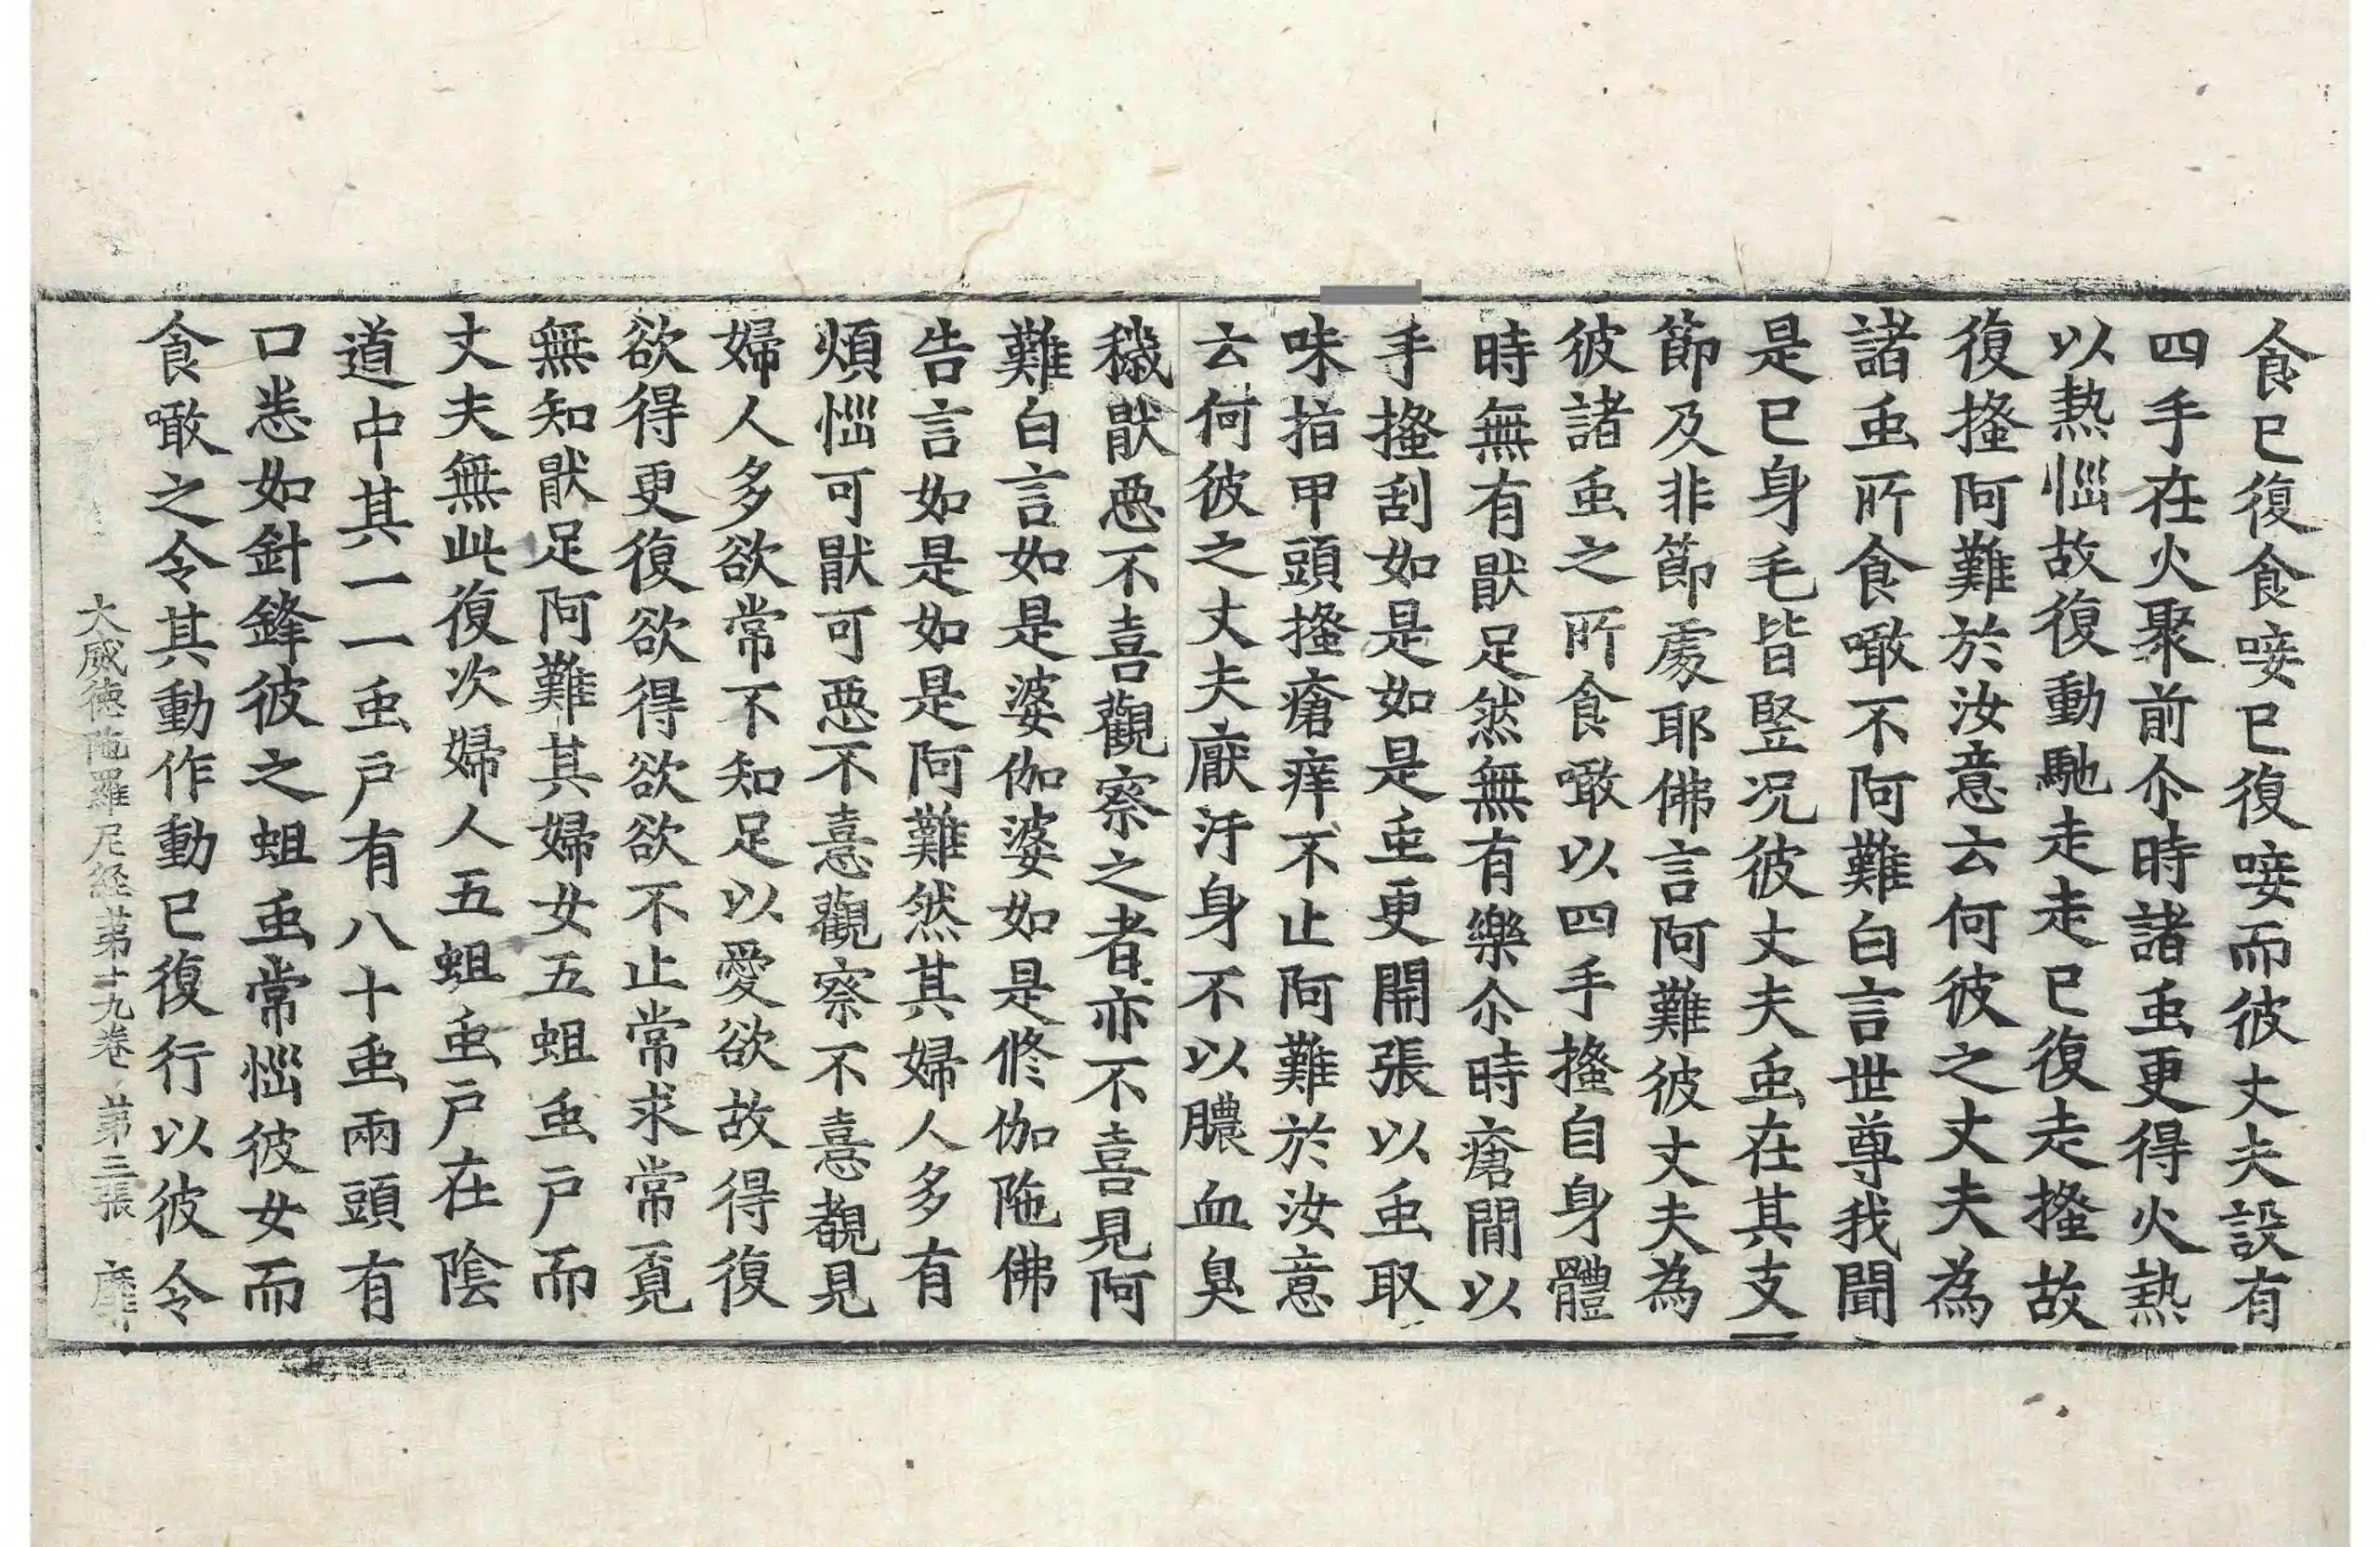 食已復食唼已復唼而彼丈夫設有
四手在火聚前尒時諸䖝更得火熱
以熱惱故復動馳走走已復走搔故
復搔阿難於汝意云何彼之丈夫為
諸䖝所食噉不阿難白言世尊我聞
是已身毛皆竪况彼丈夫䖝在其支
節及非節處耶佛言阿難彼丈夫為
彼諸䖝之所食噉以四手搔自身體
時無有猒足然無有樂尒時瘡閒以
手搔刮如是如是䖝更開張以䖝取
味指甲頭搔瘡痒不止阿難於汝意
云何彼之丈夫厭汙身不以膿血臭
穢猒惡不喜觀察之者亦不喜見阿
難白言如是婆伽婆如是修伽陁佛
告言如是如是阿難然其婦人多有
煩惱可猒可惡不憙觀察不憙觀見
婦人多欲常不知足以愛欲故得復
欲得更復欲得欲欲不止常求常覓
無知猒足阿難其婦女五蛆䖝戶而
丈夫無此復次婦人五蛆䖝戶在陰
道中其一一䖝戶有八十䖝兩頭有
口悉如針鋒彼之蛆䖝常惱彼女而
食噉之令其動作動已復行以彼令
大威德陁羅尼経苐十九卷 苐三張 靡